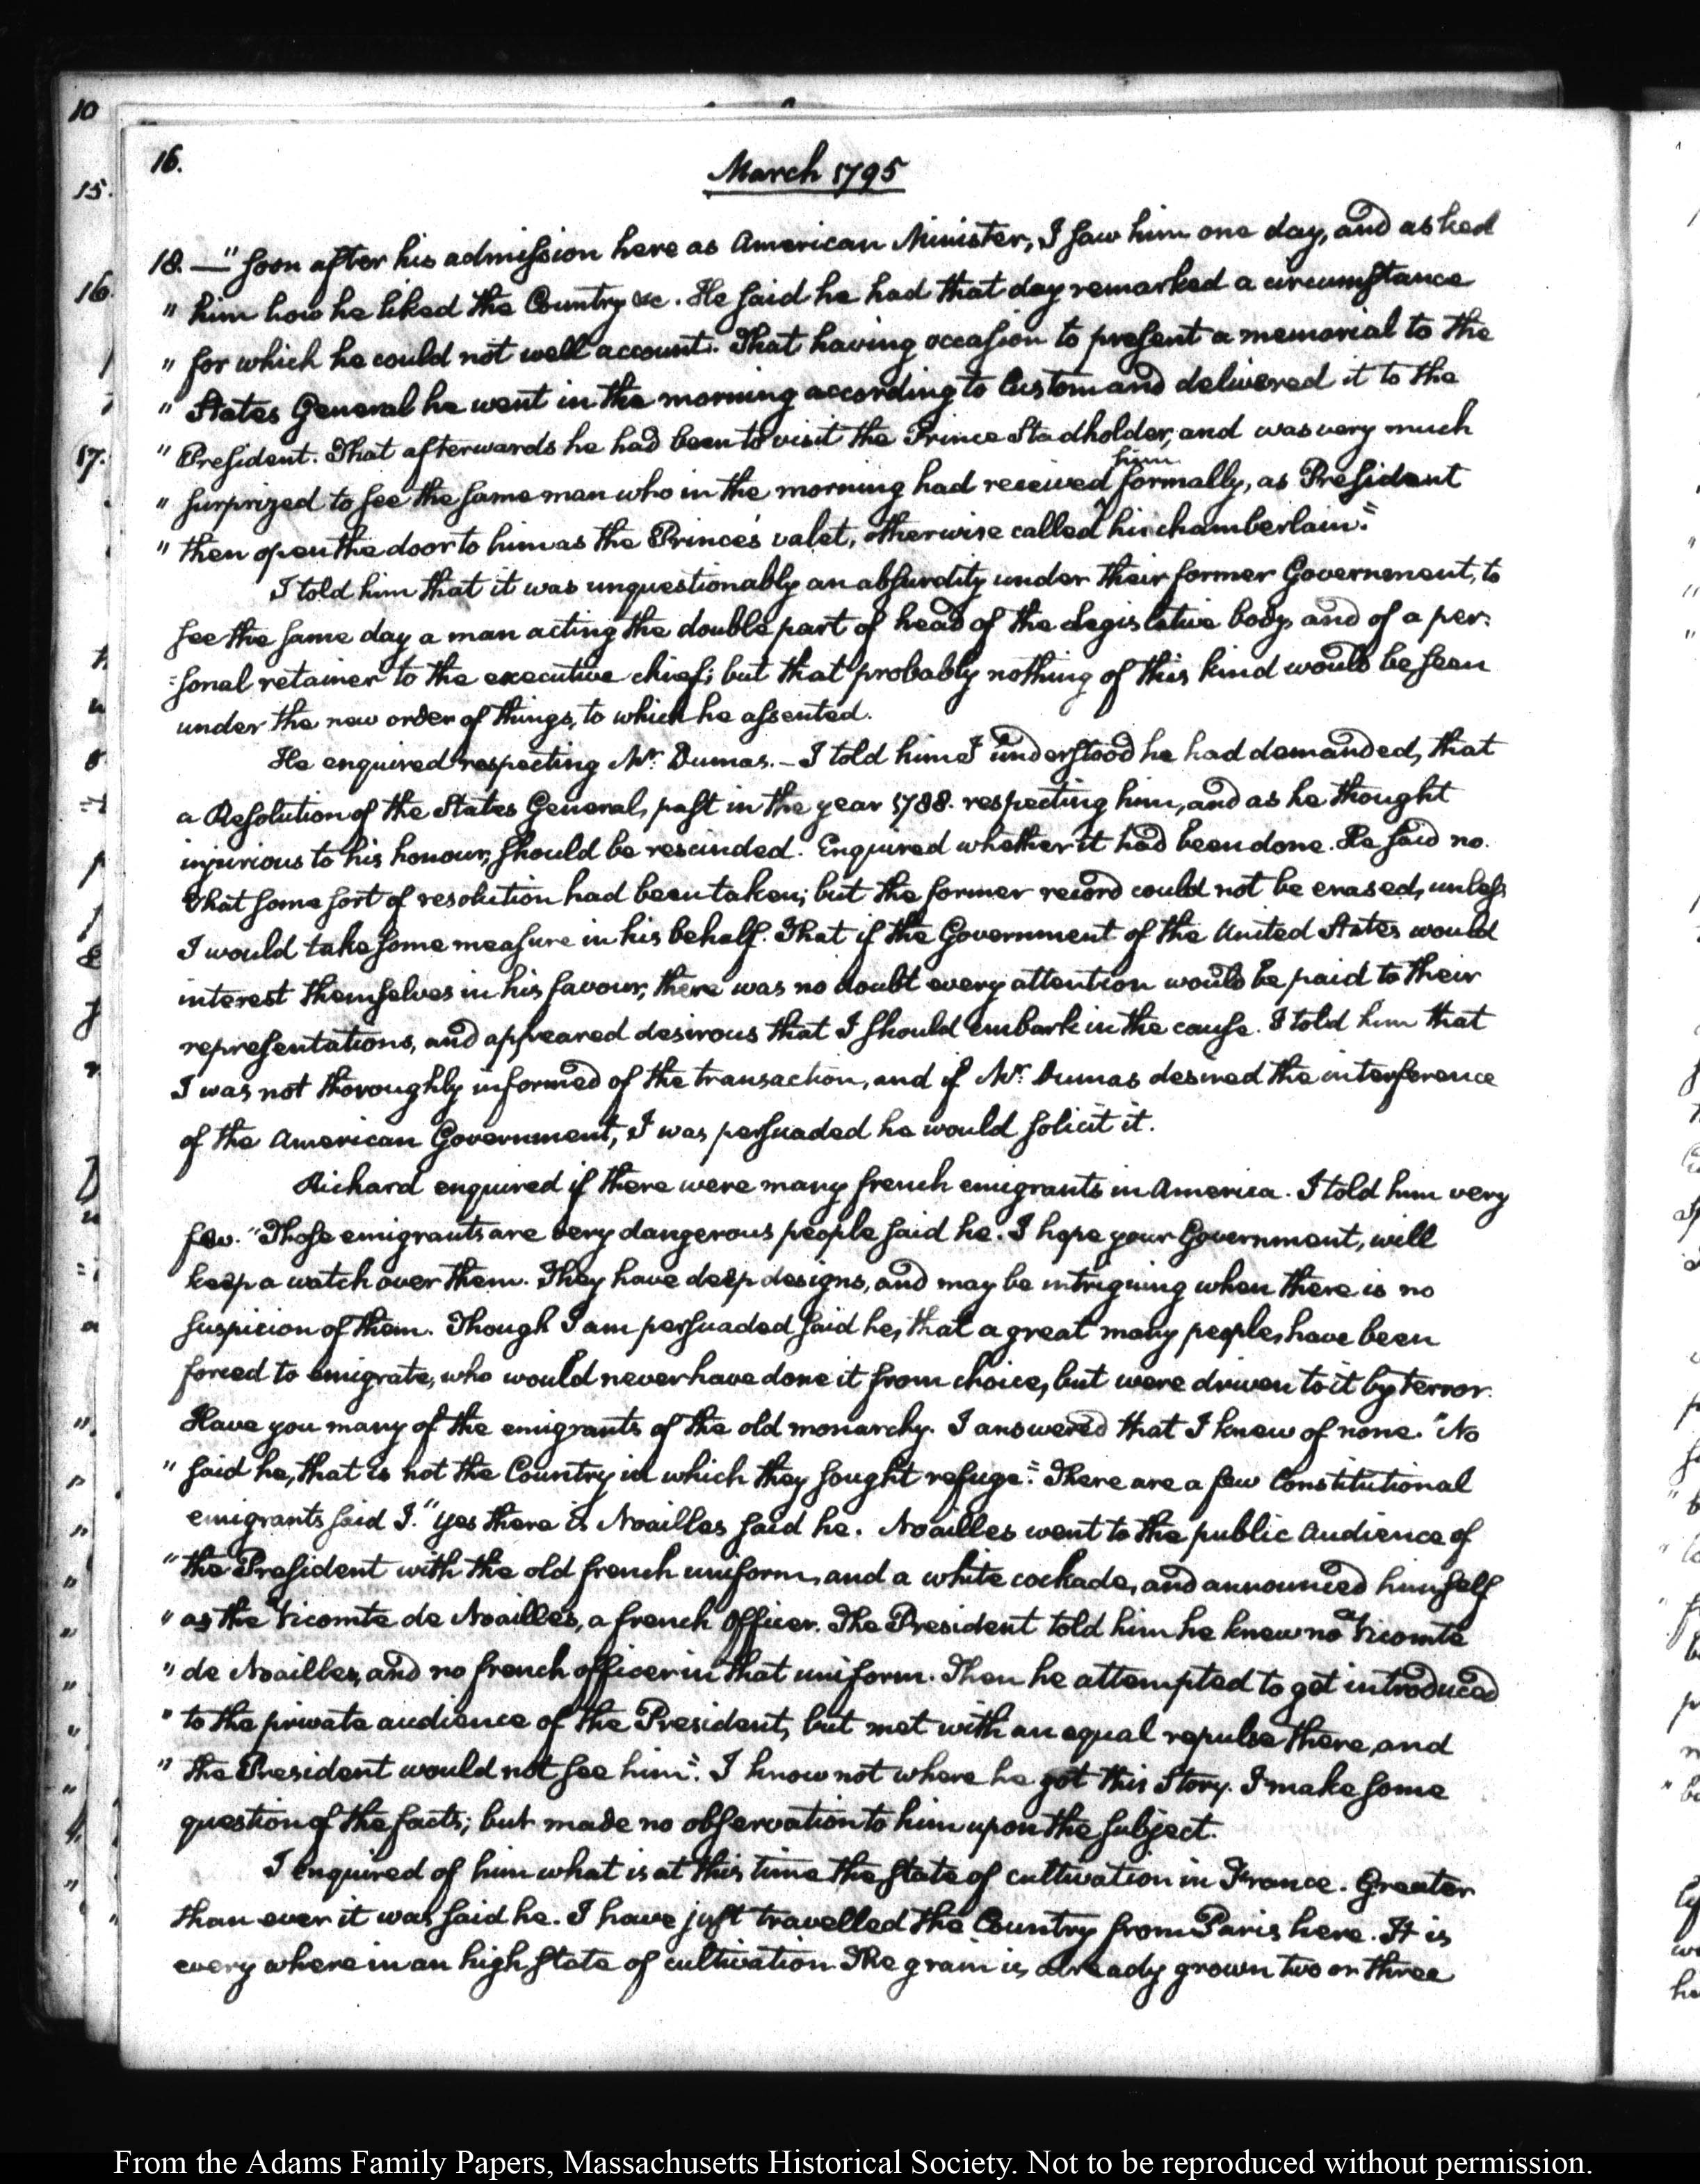 10
15.
16.
17.
16.
March 1795
18. —" Soon after his admission here as American Minister, I saw him one day, and asked
" him how he liked the Country &c. He said he had that day remarked a circumstance
" for which he could not well account. That having occasion to present a memorial to the
" States General he went in the morning according to Custom and delivered it to the
" President. That afterwards he had been to visit the Prince Stadholder, and was very much
" surprized to see the same man who in the morning had received him formally, as President
" then open the door to him as the Prince's valet, otherwise called his chamberlain."
I told him that it was unquestionably an absurdity under their former Government, to
see the same day a man acting the double part of head of the legislative body and of a per:
:sonal retainer to the executive chief; but that probably nothing of this kind would be seen
under the new order of things, to which he assented.
He enquired respecting Mr. Dumas. – I told him I understood he had demanded, that
a Resolution of the States General, past in the year 1788. respecting him, and as he thought
injurious to his honour, should be rescinded. Enquired whether it had been done. He said no.
That some sort of resolution had been taken; but the former record could not be erased, unless
I would take some measure in his behalf. That if the Government of the United States would
interest themselves in his favour, there was no doubt every attention would be paid to their
representations, and appeared desirous that I should embark in the cause. I told him that
I was not thoroughly informed of the transaction, and if Mr. Dumas desired the interference
of the American Government, I was persuaded he would solicit it.
Richard enquired if there were many french emigrants in America. I told him very
few. "Those emigrants are very dangerous people said he. I hope your Government, will
keep a watch over them. They have deep designs, and may be intriguing when there is no
suspicion of them. Though I am persuaded said he, that a great many people, have been
forced to emigrate, who would never have done it from choice, but were driven to it by terror.
Have you many of the emigrants of the old monarchy. I answered that I knew of none. "No
" said he, that is not the Country in which they sought refuge." There are a few Constitutional
emigrants said I. "yes there is Noailles said he. Noailles went to the public Audience of
" the President with the old french uniform, and a white cockade, and announced himself
" as the Vicomte de Noailles, a french Officer. The President told him he knew no Vicomte
" de Noailles, and no french officer in that uniform. Then he attempted to get introduced
" to the private audience of the President, but met with an equal repulse there, and
" the President would not see him." I know not where he got this Story. I make some
question of the facts; but made no observation to him upon the subject.
I enquired of him what is at this time the state of cultivation in France. Greater
than ever it was said he. I have just travelled the Country from Paris here. It is
every where in an high state of cultivation. The grain is already grown two or three
From the Adams Family Papers, Massachusetts Historical Society. Not to be reproduced without permission.